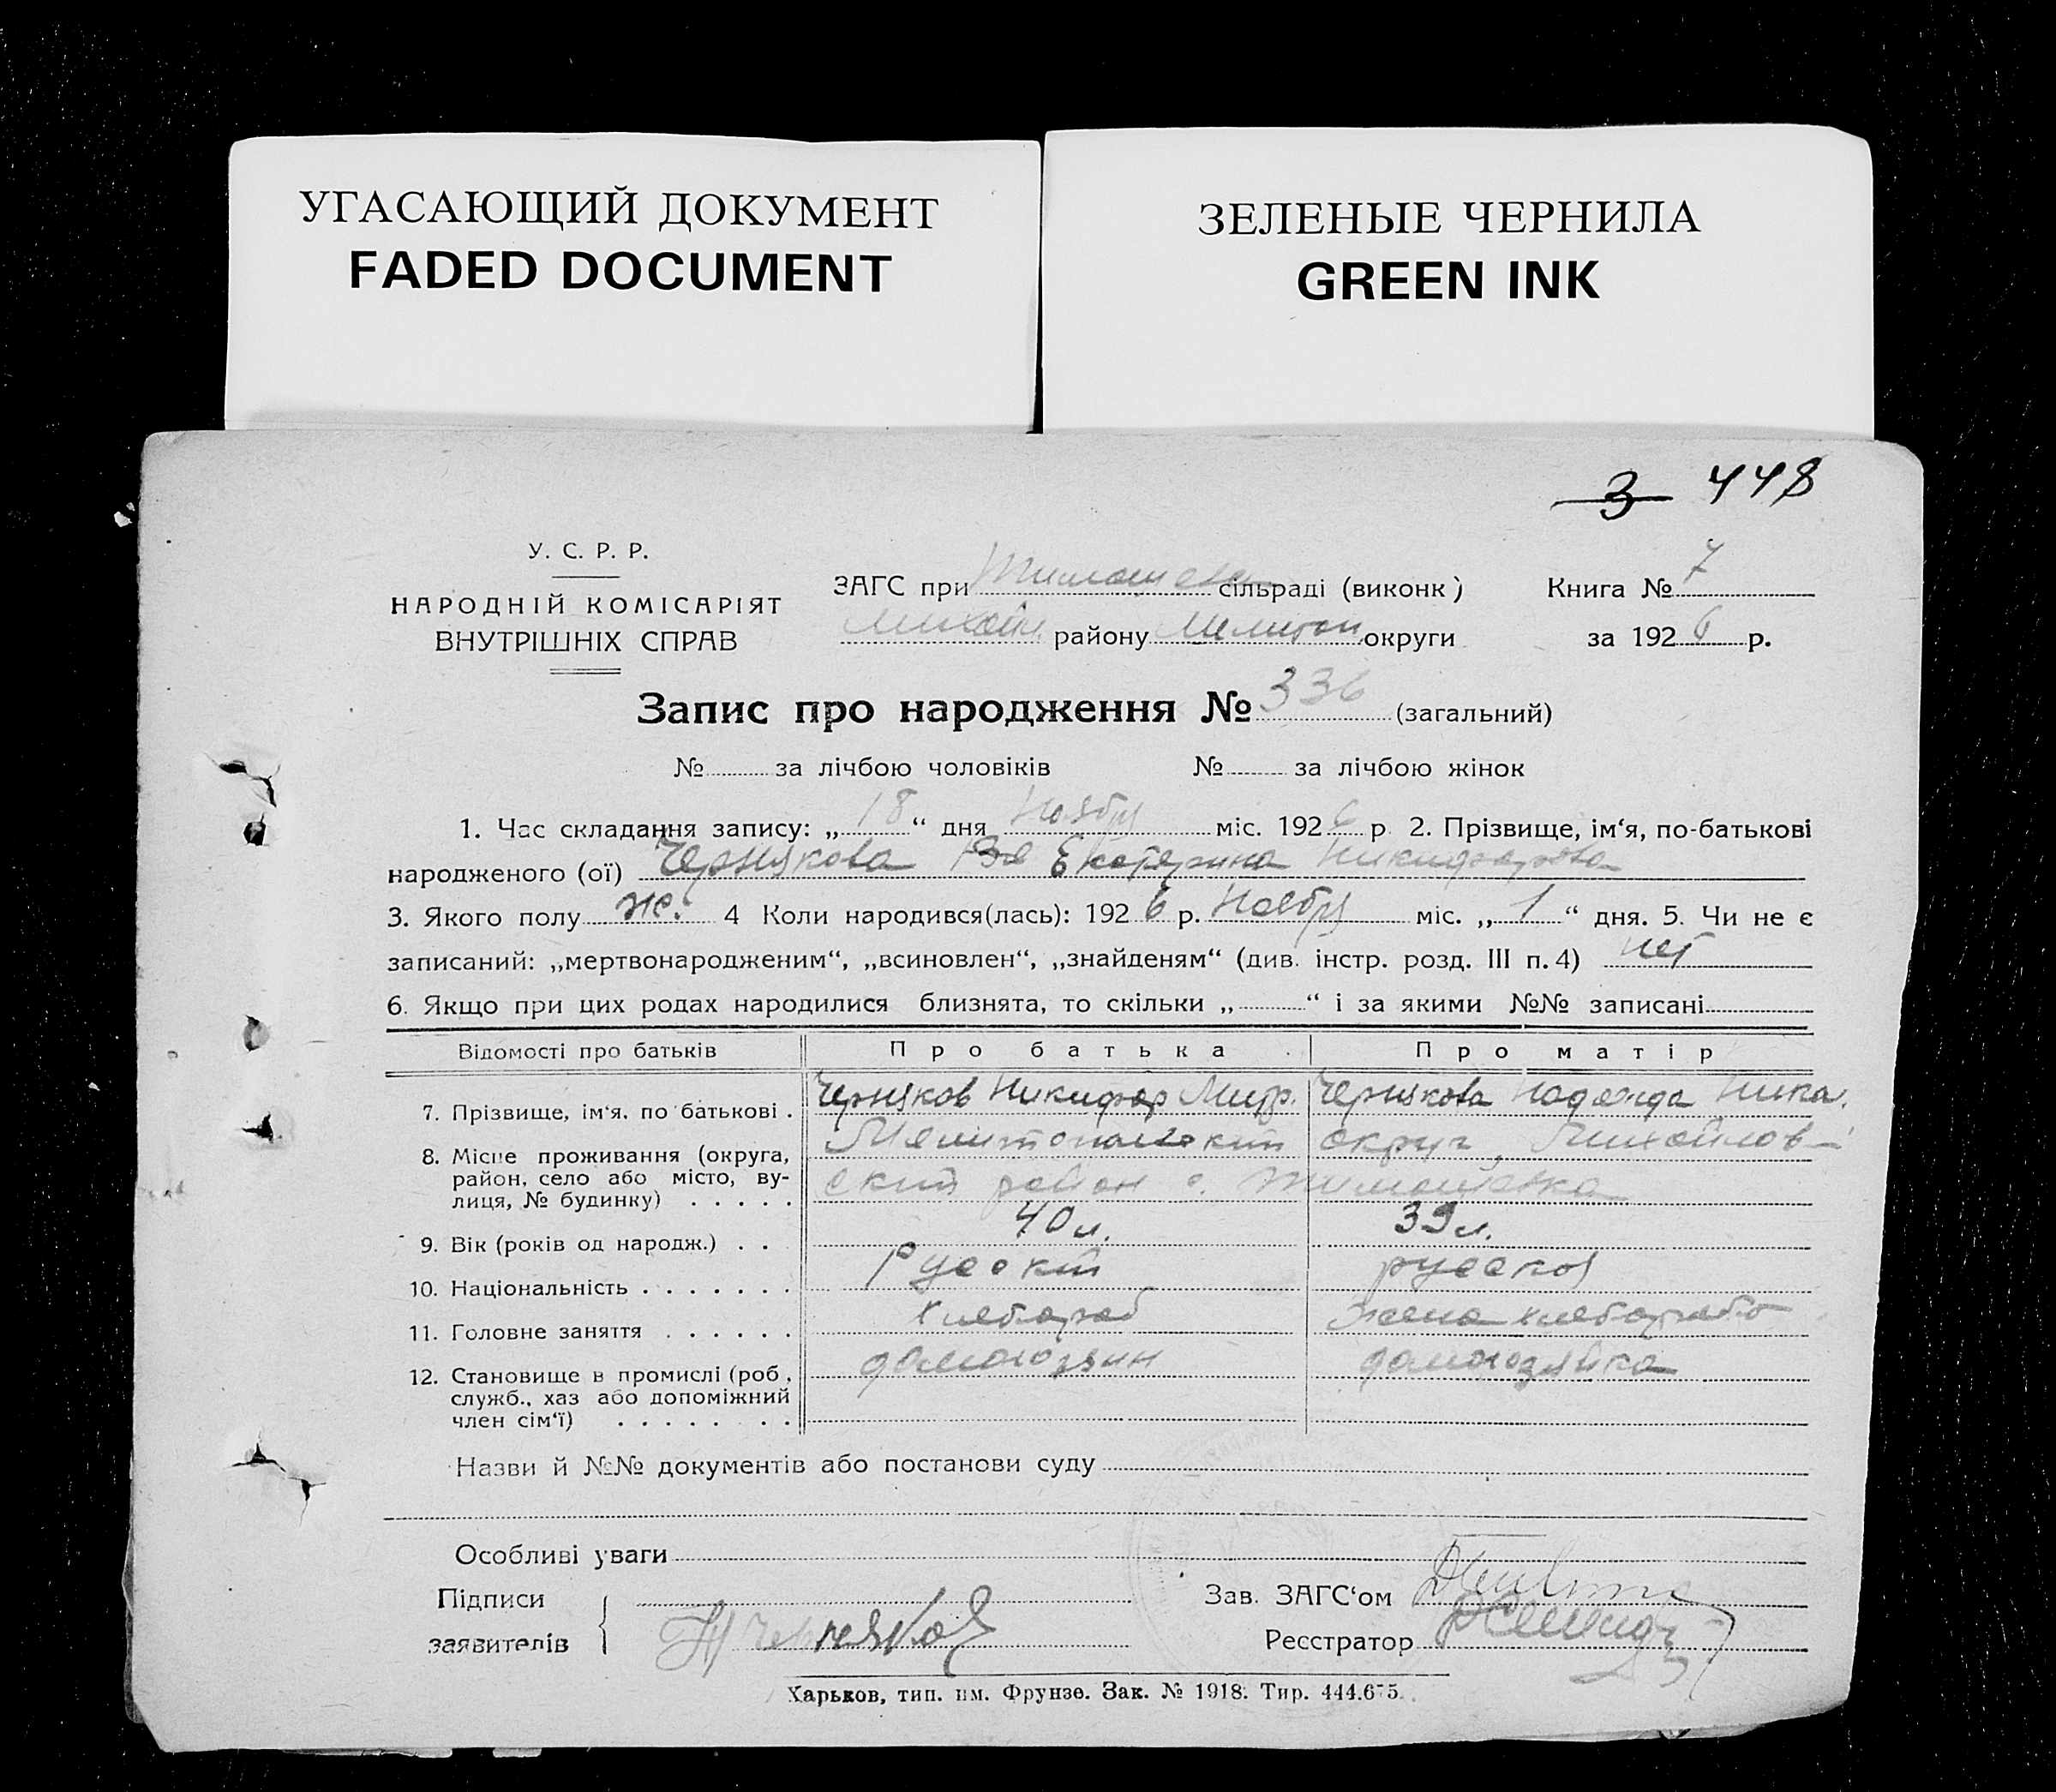 УГАСАЮЩИЙ ДОКУМЕНТ
FADED DOCUMENT
ЗЕЛЕНЫЕ ЧЕРНИЛА
GREEN INK
3 448
У. С. Р. Р.
НАРОДНІЙ КОМІСАРІЯТ
ВНУТРІШНІХ СПРАВ
ЗАГС при Тимошевск сільраді (виконк)
Михайл. району Мелитоп. округи
Книга № 7
за 1926 р.
Запис про народження № 336 (загальний)
№ за лічбою чоловіків № за лічбою жінок
1. Час складання запису: „18“ дня Ноября міс. 1926 р 2. Прізвище, ім‘я, по-батькові
народженого (ої) Чернякова Екатерина Никифорова
3. Якого полу же. 4 Коли народився(лась): 1926 р. Ноября міс. „1“ дня. 5. Чи не є
записаний: „мертвонародженим“, „всиновлен“, „знайденям“ (див. інстр. розд. III п. 4) нет
6. Якщо при цих родах народилися близнята, то скільки „ “ і за якими №№ записані
Відомості про батьків Про батька Про матір
7. Прізвище, ім‘я, по батькові . Черняков Никифор Митр. Чернякова Надежда Ника.
8. Місце проживання (округа, район, село або місто, ву-
лиця, № будинку) . . . . . Мелитопольский округ, Михайлов-
ский район с. Тимошевка
9. Вік (років од народж.) . . 40 л. 39 л.
10. Національність . . . . . . . Русский русская
11. Головне заняття . . . . . . хлебороб жена хлебороба
12. Становище в промислі (роб., домохозяин домохозяйка
служб., хаз або допоміжний
член сім‘ї) . . . . . . . .
Назви й №№ документів або постанови суду
Особливі уваги
Підписи
заявителів Н Черняков
Зав. ЗАГС‘ом
Реєстратор
Харьков, тип. им. Фрунзе. Зак. № 1918. Тир. 444.675.